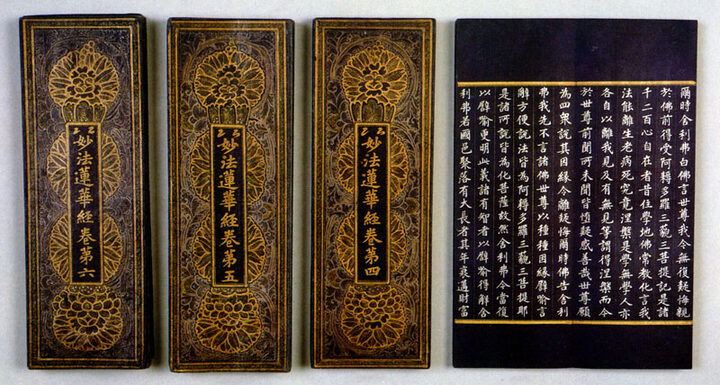 爾時舍利弗白佛言世尊我今無復疑悔親
於佛前得受阿耨多羅三藐三菩提記是諸
千二百心自在者昔住學地佛常教化言我
法能離生老病死究竟涅槃是學無學人亦
各自以離我見及有無見等謂得涅槃而今
於世尊前聞所未聞皆墮疑惑善哉世尊願
為四衆說其因緣令離疑悔爾時佛告舍利
弗我先不言諸佛世尊以種種因緣譬喻言
辭方便說法皆為阿耨多羅三藐三菩提耶
是諸所說皆為化菩薩故然舍利弗今當復
以譬喻更明此義諸有智者以譬喻得解舍
利弗若國邑聚落有大長者其年衰邁財富
妙法蓮華經卷第四
妙法蓮華經卷第五
妙法蓮華經卷第六